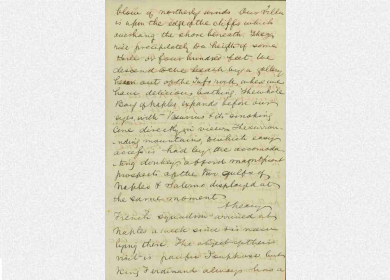 blow of northerly winds. Our Villa
is upon the edge of the cliffs which
overhang the shore beneath. They
rise precipitately to a height of some
three or four hundred feet. We
descend to the beach by a gallery
hewn out of the Tufa rock, where we
have delicious bathing. The whole
Bay of Naples expands before our
eyes with Vesuvius & its smoking
cone directly in view. The surroun-
ding mountains, to which easy
access is had by the accomoda
ting donkeys afford magnificent
prospects of the two gulfs of
Naples & Salerno displayed at
the same moment.
A heavy
French squadron arrived at
Naples a week since & is now
lying there. The object of their
visit is
King Ferdinand always has a